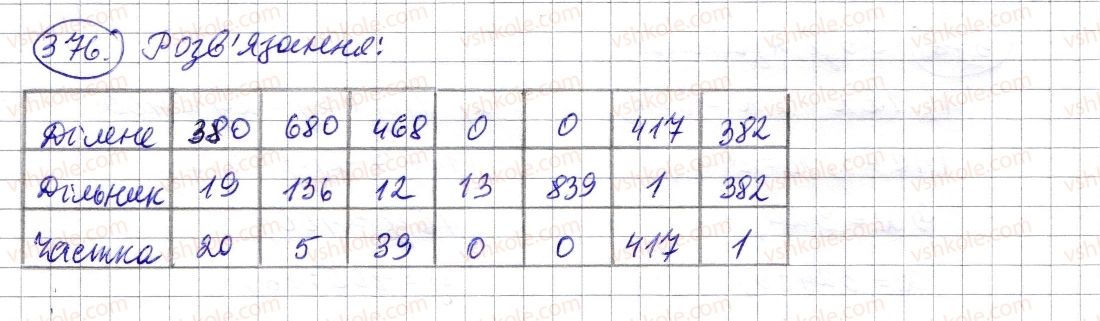 376. Розв'язання:
Ділене 380 680 468 0 0 417 382
Дільник 19 136 12 13 839 1 382
Частка 20 5 39 0 0 417 1
vshkole.com